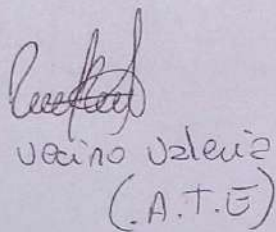 Vecino Valeria
(.A.T.E)